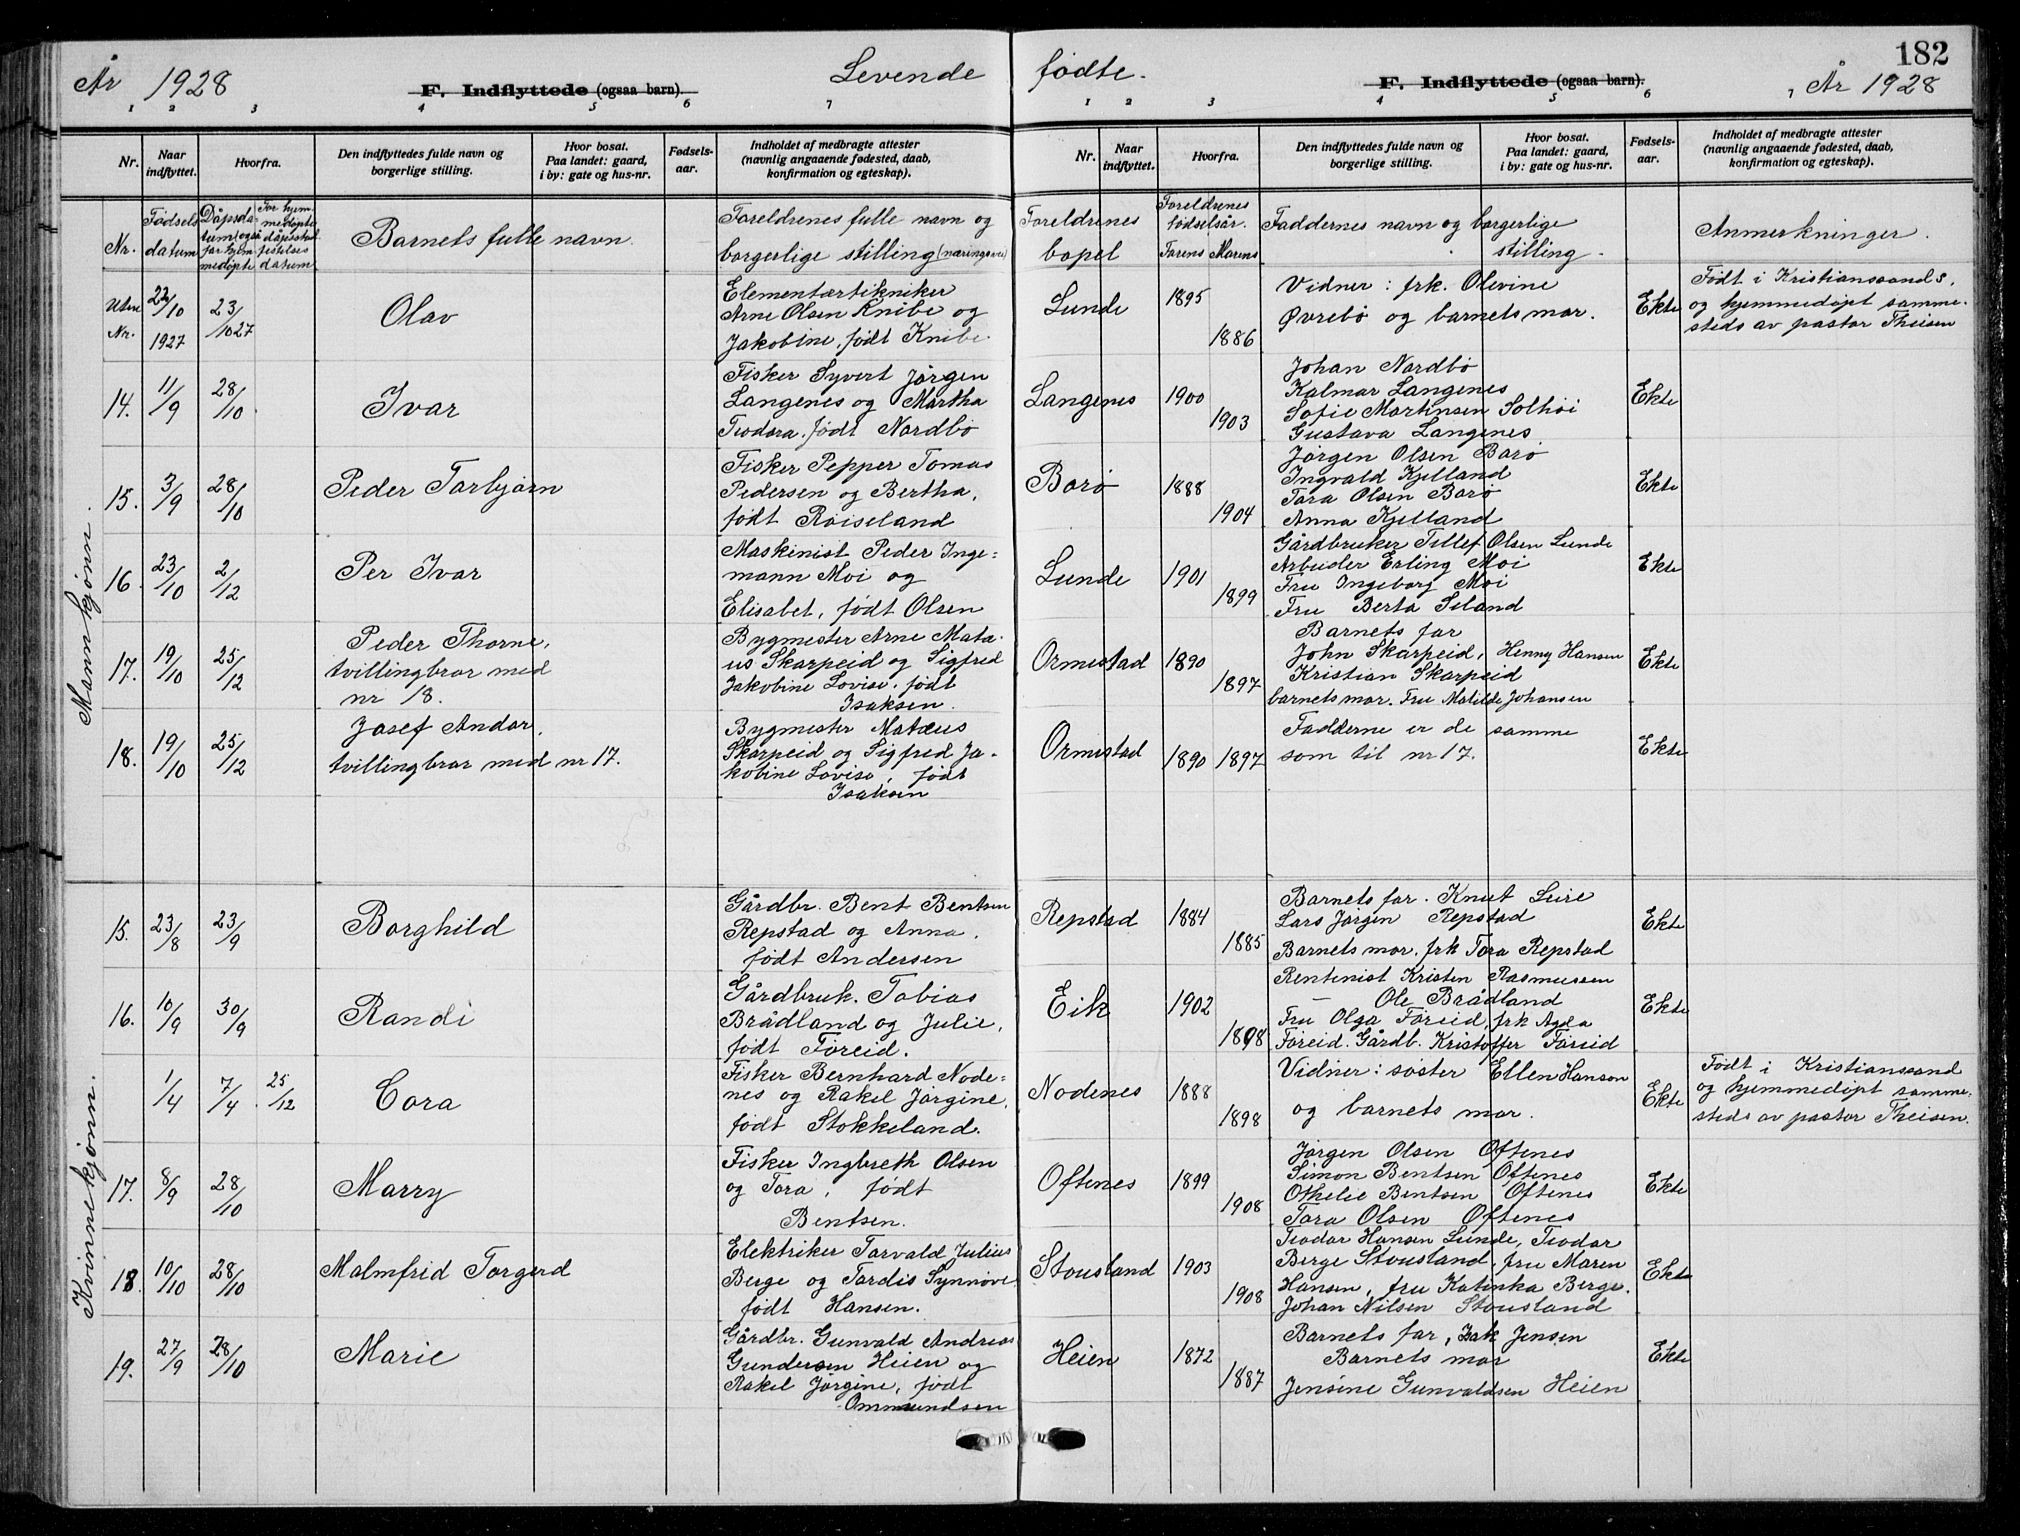 År 1928
F. Indflyttede (ogsaa barn).
Levende
fødte.
F. Indflyttede (ogsaa barn).
182
År 1928
1 2 3 4 5 6 7
1 2 3 4 5 6 7
Nr.
Naar indflyttet.
Hvorfra.
Den indflyttedes fulde navn og
borgerlige stilling.
Hvor bosat.
Paa landet: gaard,
i by: gate og hus-nr.
Fødsels-
aar.
Indholdet af medbragte attester
(navnlig angaaende fødested, daab,
konfirmation og egteskap).
Nr.
Naar
indflyttet.
Hvorfra.
Den indflyttedes fulde navn og
borgerlige stilling.
Hvor bosat.
Paa landet: gaard,
i by: gate og hus-nr.
Fødsels-
aar.
Indholdet af medbragte attester
(navnlig angaaende fødested, daab,
konfirmation og egteskap).
Nr.
Fødsels
datum
Dåpsda-
tum også
for hjem-
medøpte
For hjem-
medøpte
dåpsstad
festelses
datum
Barnets fulle navn.
Foreldrenes fulle navn og
borgerlige stilling (næringsvei)
Foreldrenes
bopel
Foreldrenes
fødselsår.
Farens Morens
Faddernes navn og borgerlige
stilling.
Anmerkninger.
Mannkjønn.
Uten
Nr.
22/10
1927
23/10 27
Olav
Elementærtekniker
Arne Olsen Knibe og
Jakobine, født Knibe.
Lunde
1895
1886
Vidner: frk. Olevine
Øvrebö og barnets mor.
Ekte
Født i Kristianssand S.
og hjemmedøpt samme-
steds av pastor Theisen
14.
11/9
28/10
Ivar
Fisker Syvert Jørgen
Langenes og Martha
Teodora. født Nordbø
Langenes
1900
1903
Johan Nordbø
Kalmar Langenes
Sofie Martinsen Solhøi
Gustava Langenes
Ekte
15.
3/9
28/10
Peder Torbjørn
Fisker Pepper Tomas
Pedersen og Bertha,
født Røiseland
Borø
1888
1904
Jørgen Olsen Borø
Ingvald Kjelland
Tora Olsen Borø
Anna Kjelland
Ekte
16.
23/10
2/12
Per Ivar
Maskinist Peder Inge-
mann Moi og
Elisabet, født Olsen
Lunde
1901
1899
Gårdbruker Tellef Olsen Lunde
Arbeider Erling Moi
Fru Ingeborg Moi
Fru Berta Seland
Ekte
17.
19/10
25/12
Peder Thorne,
tvillingbror med
nr 18.
Bygmester Arne Mata-
us Skarpeid og Sigfred
Jakobine Lovise. født
Isaksen.
Ormestad
1890
1897
Barnets far
John Skarpeid, Henny Hansen
Kristian Skarpeid
barnets mor. Fru Matilde Johansen
Ekte
18.
19/10
25/12
Josef Andor,
tvillingbror med nr 17.
Bygmester Matæus
Skarpeid og Sigfred Ja-
kobine Lovise, født
Isaksen
Ormestad
1890 1897
Fadderne er de samme
som til nr 17.
Ekte
Kvinnekjønn.
15.
23/8
23/9
Borghild
Gårdbr. Bent Bentsen
Repstad og Anna,
født Andersen
Repstad
1884
1885
Barnets far. Knut Leire
Lars Jørgen Repstad
Barnets mor, frk Tora Repstad
Ekte
16.
10/9
30/9
Randi
Gårdbruk. Tobias
Brådland og Julie,
fødtFøreid.
Eik
1902
1898
Rentenist Kristen Rasmussen
— Ole Brådland
Fru Olga Føreid, frk Agda
Føreid. Gårdb. Kristoffer Føreid
Ekte
1/4
7/4
25/12
Cora
Fisker Bernhard Node-
nes og Rakel Jørgine,
født Stokkeland.
Nodenes
1888
1898
Vidner: søster Ellen Hanson
og barnets mor.
Ekte
Født i Kristianssand
og hjemmedøpt samme-
steds av pastor Theisen.
17.
8/9
28/10
Marry
Fisker Ingbreth Olsen
og Tora, født
Bentsen.
Oftenes
1899
1908
Jørgen Olsen Oftenes
Simon Bentsen Oftenes
Othelie Bentsen Oftenes
Tora Olsen Oftenes
Ekte
18.
10/10
28/10
Malmfrid Torgerd
Elektriker Torvald Julius
Berge og Tordis Synnøve
født Hansen.
Stousland
1903
1908
Teodor Hansen Lunde, Teodor
Berge Stousland, fru Maren
Hansen, fru Katinka Berge.
Johan Nilsen Stousland
Ekte
19.
27/9
28/10
Marie
Gårdbr. Gunvald Andreas
Gundersen Heien og
Rakel Jørgine, født
Ommundsen
Heien
1872
1887
Barnets far, Isak Jensen
Barnets mor
Jensine Gunvaldsen Heien
Ekte